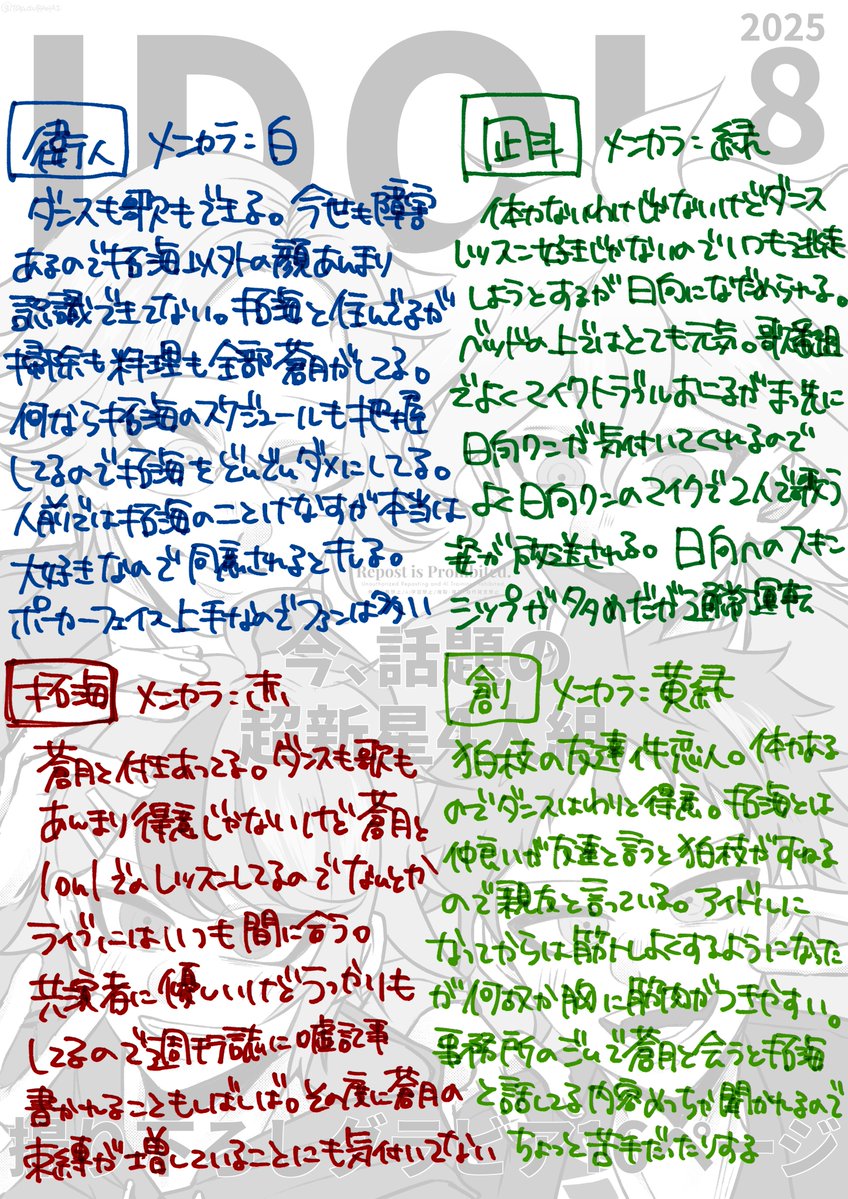 IDOL
2025
8
衛人 メンカラ：白
ダンスも歌もできる。今世も障害
あるので拓海以外の顔あんまり
認識できてない。拓海と住んでるが
掃除も料理も全部蒼月がしてる。
何なら拓海のスケジュールも把握
してるので拓海をどんどんダメにしてる。
人前では拓海のことけなすが本当は
大好きなので同意されるとキレる。
ポーカーフェイス上手なのでファンは多い
凪斗 メンカラ：緑
体力ないわけじゃないけどダンス
レッスン好きじゃないのでいつも逃走
しようとするが日向になだめられる。
ベッドの上ではとても元気。歌番組
でよくマイクトラブルおこるがまっ先に
日向クンが気付いてくれるので
よく日向クンのマイクで2人で歌う
姿が放送される。日向へのスキン
シップが多めだが通常運転
Repost is Prohibited.
今、話題の
超新星4人組
拓海 メンカラ：赤
蒼月と付きあってる。ダンスも歌も
あんまり得意じゃないけど蒼月と
1on1でのレッスンしてるのでなんとか
ライブにはいつも間に合う。
共演者に優しいけどうっかりも
してるので週刊誌に嘘記事
書かれることもしばしば。その度に蒼月の
束縛が増していることにも気付いてない
創 メンカラ：黄緑
狛枝の友達件恋人。体力ある
のでダンスはわりと得意。拓海とは
仲良いが友達と言うと狛枝がすねる
ので親友と言っている。アイドルに
なってからは筋トレよくするようになった
が何故か胸に筋肉がつきやすい。
事務所のジムで蒼月と会うと拓海
と話してる内容めっちゃ聞かれるので
ちょっと苦手だったりする
撮り下ろしグラビア16ページ